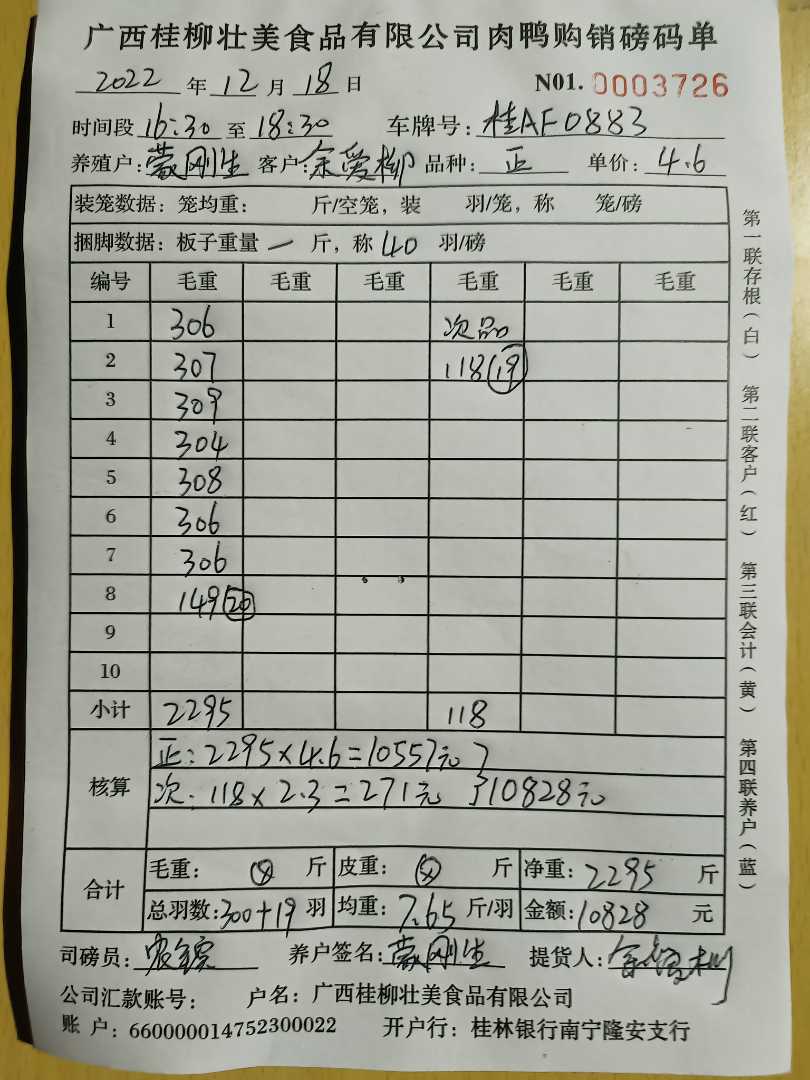 广西桂柳壮美食品有限公司肉鸭购销磅码单
2022 年 12 月 18 日 N01. 0003726
时间段 16:30 至 18:30 车牌号: 桂AF0883
养殖户: 蒙刚生 客户: 余爱柳 品种: 正 单价: 4.6
装笼数据: 笼均重: 斤/空笼, 装 羽/笼, 称 笼/磅
捆脚数据: 板子重量 一 斤, 称 40 羽/磅
编号 毛重 毛重 毛重 毛重 毛重 毛重
1 306 次品
2 307 118 (19)
3 309
4 304
5 308
6 306
7 306
8 149 (20)
9
10
小计 2295 118
核算
正: 2295×4.6=10557元
次: 118×2.3=271元 10828元
合计
毛重: 斤 皮重: 斤 净重: 2295 斤
总羽数: 300+19 羽 均重: 7.65 斤/羽 金额: 10828 元
司磅员: 养户签名: 蒙刚生 提货人: 余爱柳
公司汇款账号: 户名: 广西桂柳壮美食品有限公司
账户: 660000014752300022 开户行: 桂林银行南宁隆安支行
第一联存根(白) 第二联客户(红) 第三联会计(黄) 第四联养户(蓝)